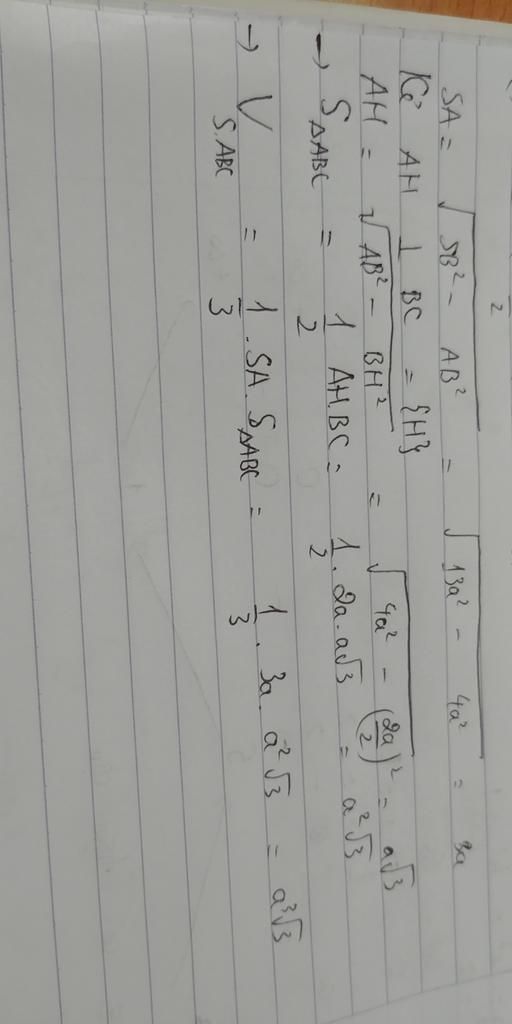 2
SA = √(SB² - AB²) = √(13a² - 4a²) = 3a
Kẻ AH ⊥ BC = {H}
AH = √(AB² - BH²) = √(4a² - (2a/2)²) = a√3
→ S_ΔABC = 1/2 AH.BC = 1/2 . 2a.a√3 = a²√3
→ V_S.ABC = 1/3 . SA. S_ΔABC = 1/3 . 3a. a²√3 = a³√3